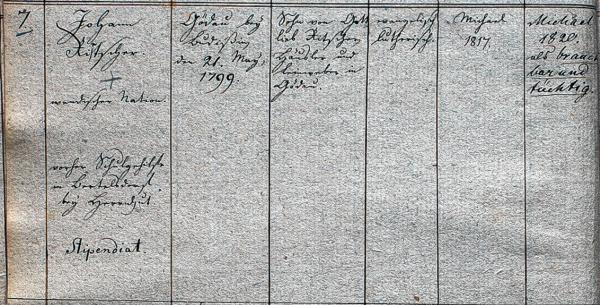 7
Johann
†
wendischer Nation.
vorher Schulgehilfe
in Bertelsdorf
bey Herrnhut
Stipendiat.
Gödau bey
Budissin,
den 21. May,
1799.
Sohn von Gott
lob
Häusler und
Leinweber in
Gödau.
evangelisch
lutherisch.
Michael
1817.
Michael
1820.
als brauch
bar und
tüchtig.